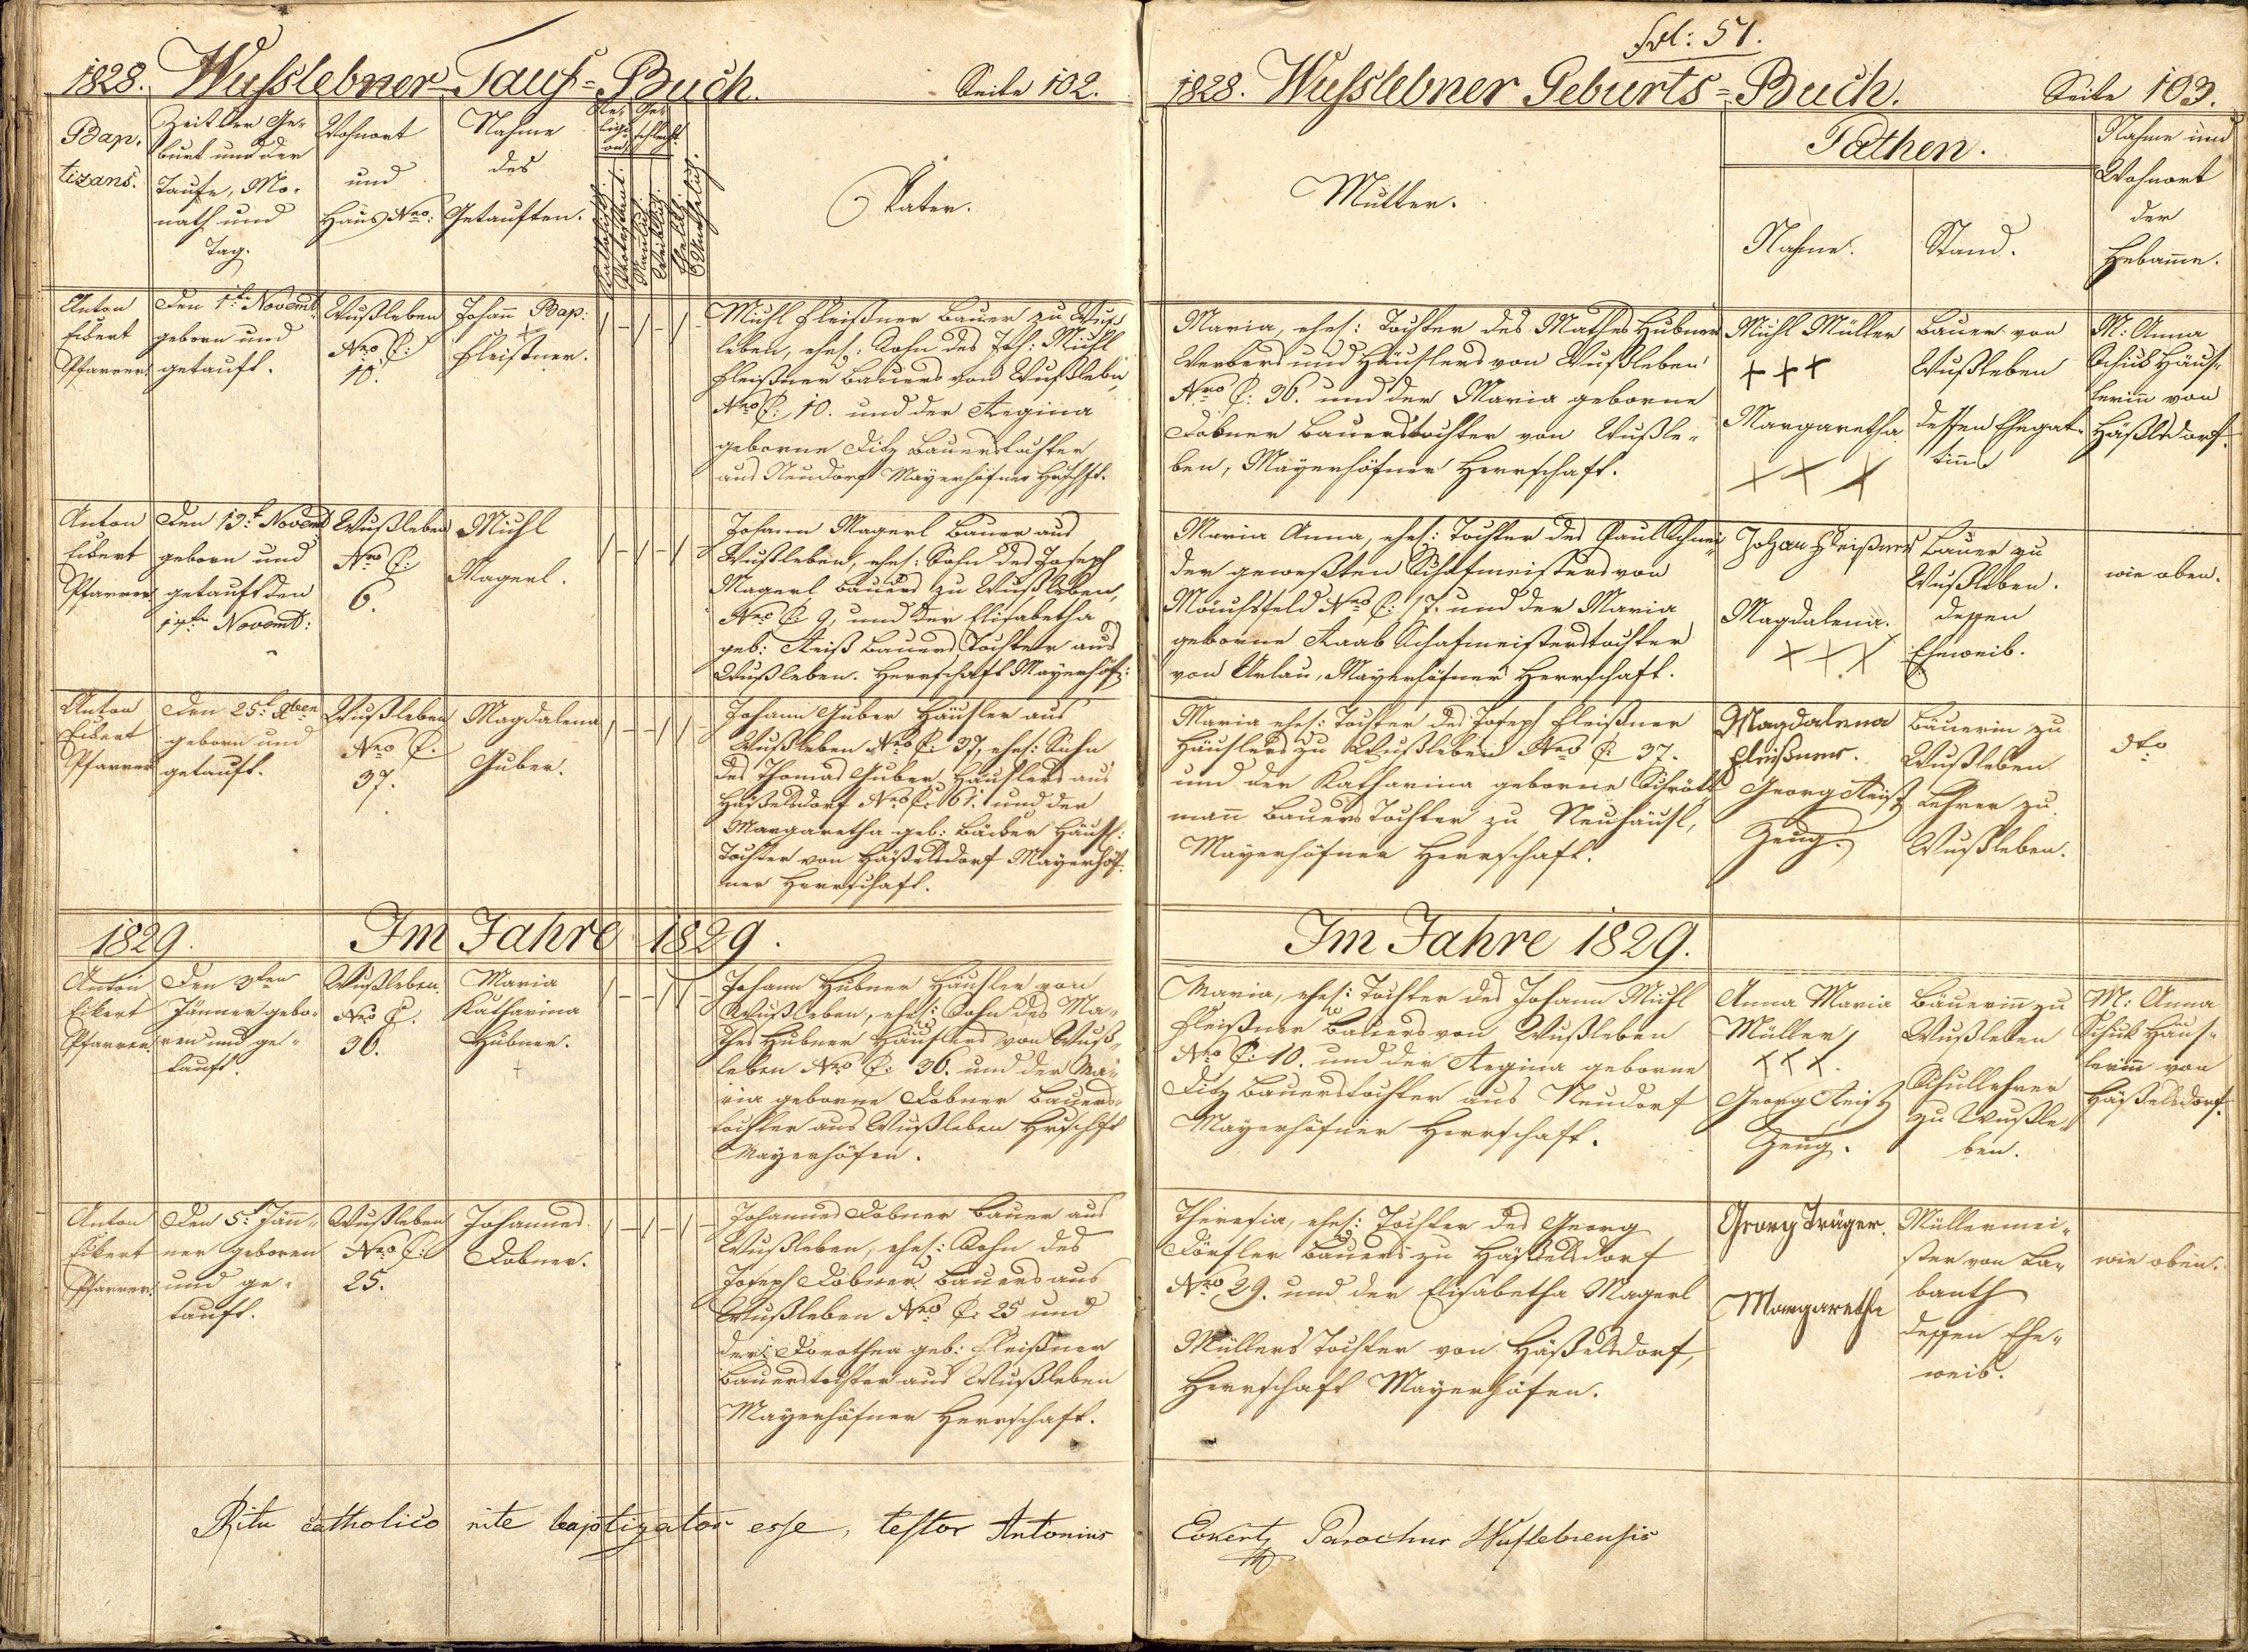 1828. Wusslebner Tauf=Buch. Seite 102.
Bap.
tizans.
Zeit der Ge-
burt und der
Taufe, Mo-
nath und
Tag.
Wohnort
und
Haus Nro:
Nahme
des
Getauften.
Re-
ligi-
on
Ge-
schlecht
Katholisch.
Protestant.
Männlich.
Weiblich.
Ehelich.
Unehelich.
Vater.
Anton
Eckert
Pfarrer
Den 1te Novemb:
geborn und
getauft.
Wußleben
Nro C:
10.
Johann Bap:
Fleißner.
Michl Fleißner Bauer zu Wuß
leben, ehel: Sohn des Joh: Michl
Fleißner Bauers von Wußlebn
Nro C: 10. und der Regina
geborne Ditz Bauerstochter
aus Neudorf Mayerhöfner Hrschft.
Anton
Eckert
Pfarrer
Den 13t Novemb
geborn und
getauft den
14te Novemb:
Wußleben
Nro C:
6.
Michl
Magerl.
Johann Magerl Bauer aus
Wußleben, ehel: Sohn des Joseph
Magerl Bauers zu Wußleben,
Nro C: 9, und der Elisabetha
geb: Reiß Bauers Tochter aus
Wußleben. Herrschaft Mayerhöf:
Anton
Eckert
Pfarrer
Den 25t Xben
geborn und
getauft.
Wußleben
Nro C.
37.
Magdalena
Huber.
Johann Huber Häusler aus
Wußleben Nro C: 37, ehel: Sohn
des Thomas Huber Häuslers aus
Haßelsdorf Nro C: 61. und der
Margaretha geb: Bäcker Häusl:
Tochter von Haßelsdorf Mayerhöf-
ner Herrschaft.
1829. Im Jahre 1829.
Anton
Eckert
Pfarrer.
Den 3ten
Jänner gebo-
ren und ge-
tauft.
Wußleben.
Nro C.
36.
Maria
Katharina
Hubner.
Johann Hubner Häusler von
Wußleben, ehel: Sohn des Ma-
thes Hubner Häuslers von Wuß-
leben Nro C: 36. und der Ma-
ria geborne Dobner Bauers-
tochter aus Wußleben Hrschft
Mayerhöfen.
Anton
Eckert
Pfarrer.
Den 5t Jän-
ner geboren
und ge-
tauft.
Wußleben
Nro C:
25.
Johannes
Dobner.
Johannes Dobner Bauer aus
Wußleben, ehel: Sohn des
Joseph Dobner Bauers aus
Wußleben Nro C: 25 und
der Dorothea geb: Fleißner
Bauerstochter aus Wußleben
Mayerhöfner Herrschaft.
Ritu catholico rite baptizatos esse, testor Antonius
fol: 51.
1828. Wusslebner Geburts=Buch. Seite 103.
Mutter.
Pathen.
Nahme.
Stand.
Nahme und
Wohnort
der
Hebamme.
Maria, ehel: Tochter des Mathes Hubner
Webers und Häuslers von Wußleben
Nro C: 36. und der Maria geborne
Dobner Bauerstochter von Wußle-
ben, Mayerhöfner Herrschaft.
Michl Müller
+++
Margaretha
XXX
Bauer von
Wußleben
dessen Ehegat-
tinn
M: Anna
Schuk Häus-
lerinn von
Haßlsdorf.
Maria Anna, ehel: Tochter des Paul Schnei-
der gewesten Schafmeisters von
Mönchsfeld Nro C: 17. und der Maria
geborne Raab Schafmeisterstochter
von Urlau, Mayerhöfner Herrschaft.
Johan Fleißner
Magdalena.
XXX
Bauer zu
Wußleben.
dessen
Eheweib.
wie oben.
Maria ehel: Tochter des Joseph Fleißner
Häuslers zu Wußleben Nro C 37.
und der Katharina geborne Schröt
mann Bauers Tochter zu Neuhäusl,
Mayerhöfner Herrschaft.
Magdalena
Fleißner.
Georg Reiß
Zeug.
Bäuerin zu
Wußleben
Lehrer zu
Wußleben.
dto
Im Jahre 1829.
Maria, ehel: Tochter des Johann Michl
Fleißner Bauers von Wußleben
Nro C: 10. und der Regina geborne
Ditz Bauerstochter aus Neudorf
Mayerhöfner Herrschaft.
Anna Maria
Müller
XXX.
Georg Reiß
Zeug.
Bäuerinn zu
Wußleben
Schullehrer
zu Wußle-
ben.
M: Anna
Schuk Häus-
lerinn von
Haßelsdorf.
Theresia, ehel: Tochter des Georg
Dörfler Bauers zu Haßelsdorf
Nro 29. und der Elisabetha Magerl
Müllers Tochter von Haßelsdorf,
Herrschaft Mayerhöfen.
Georg Träger.
Margaretha
Müllermei-
ster von La-
banth
dessen Ehe-
weib.
wie oben.
Eckert Parochus Wuslebensis